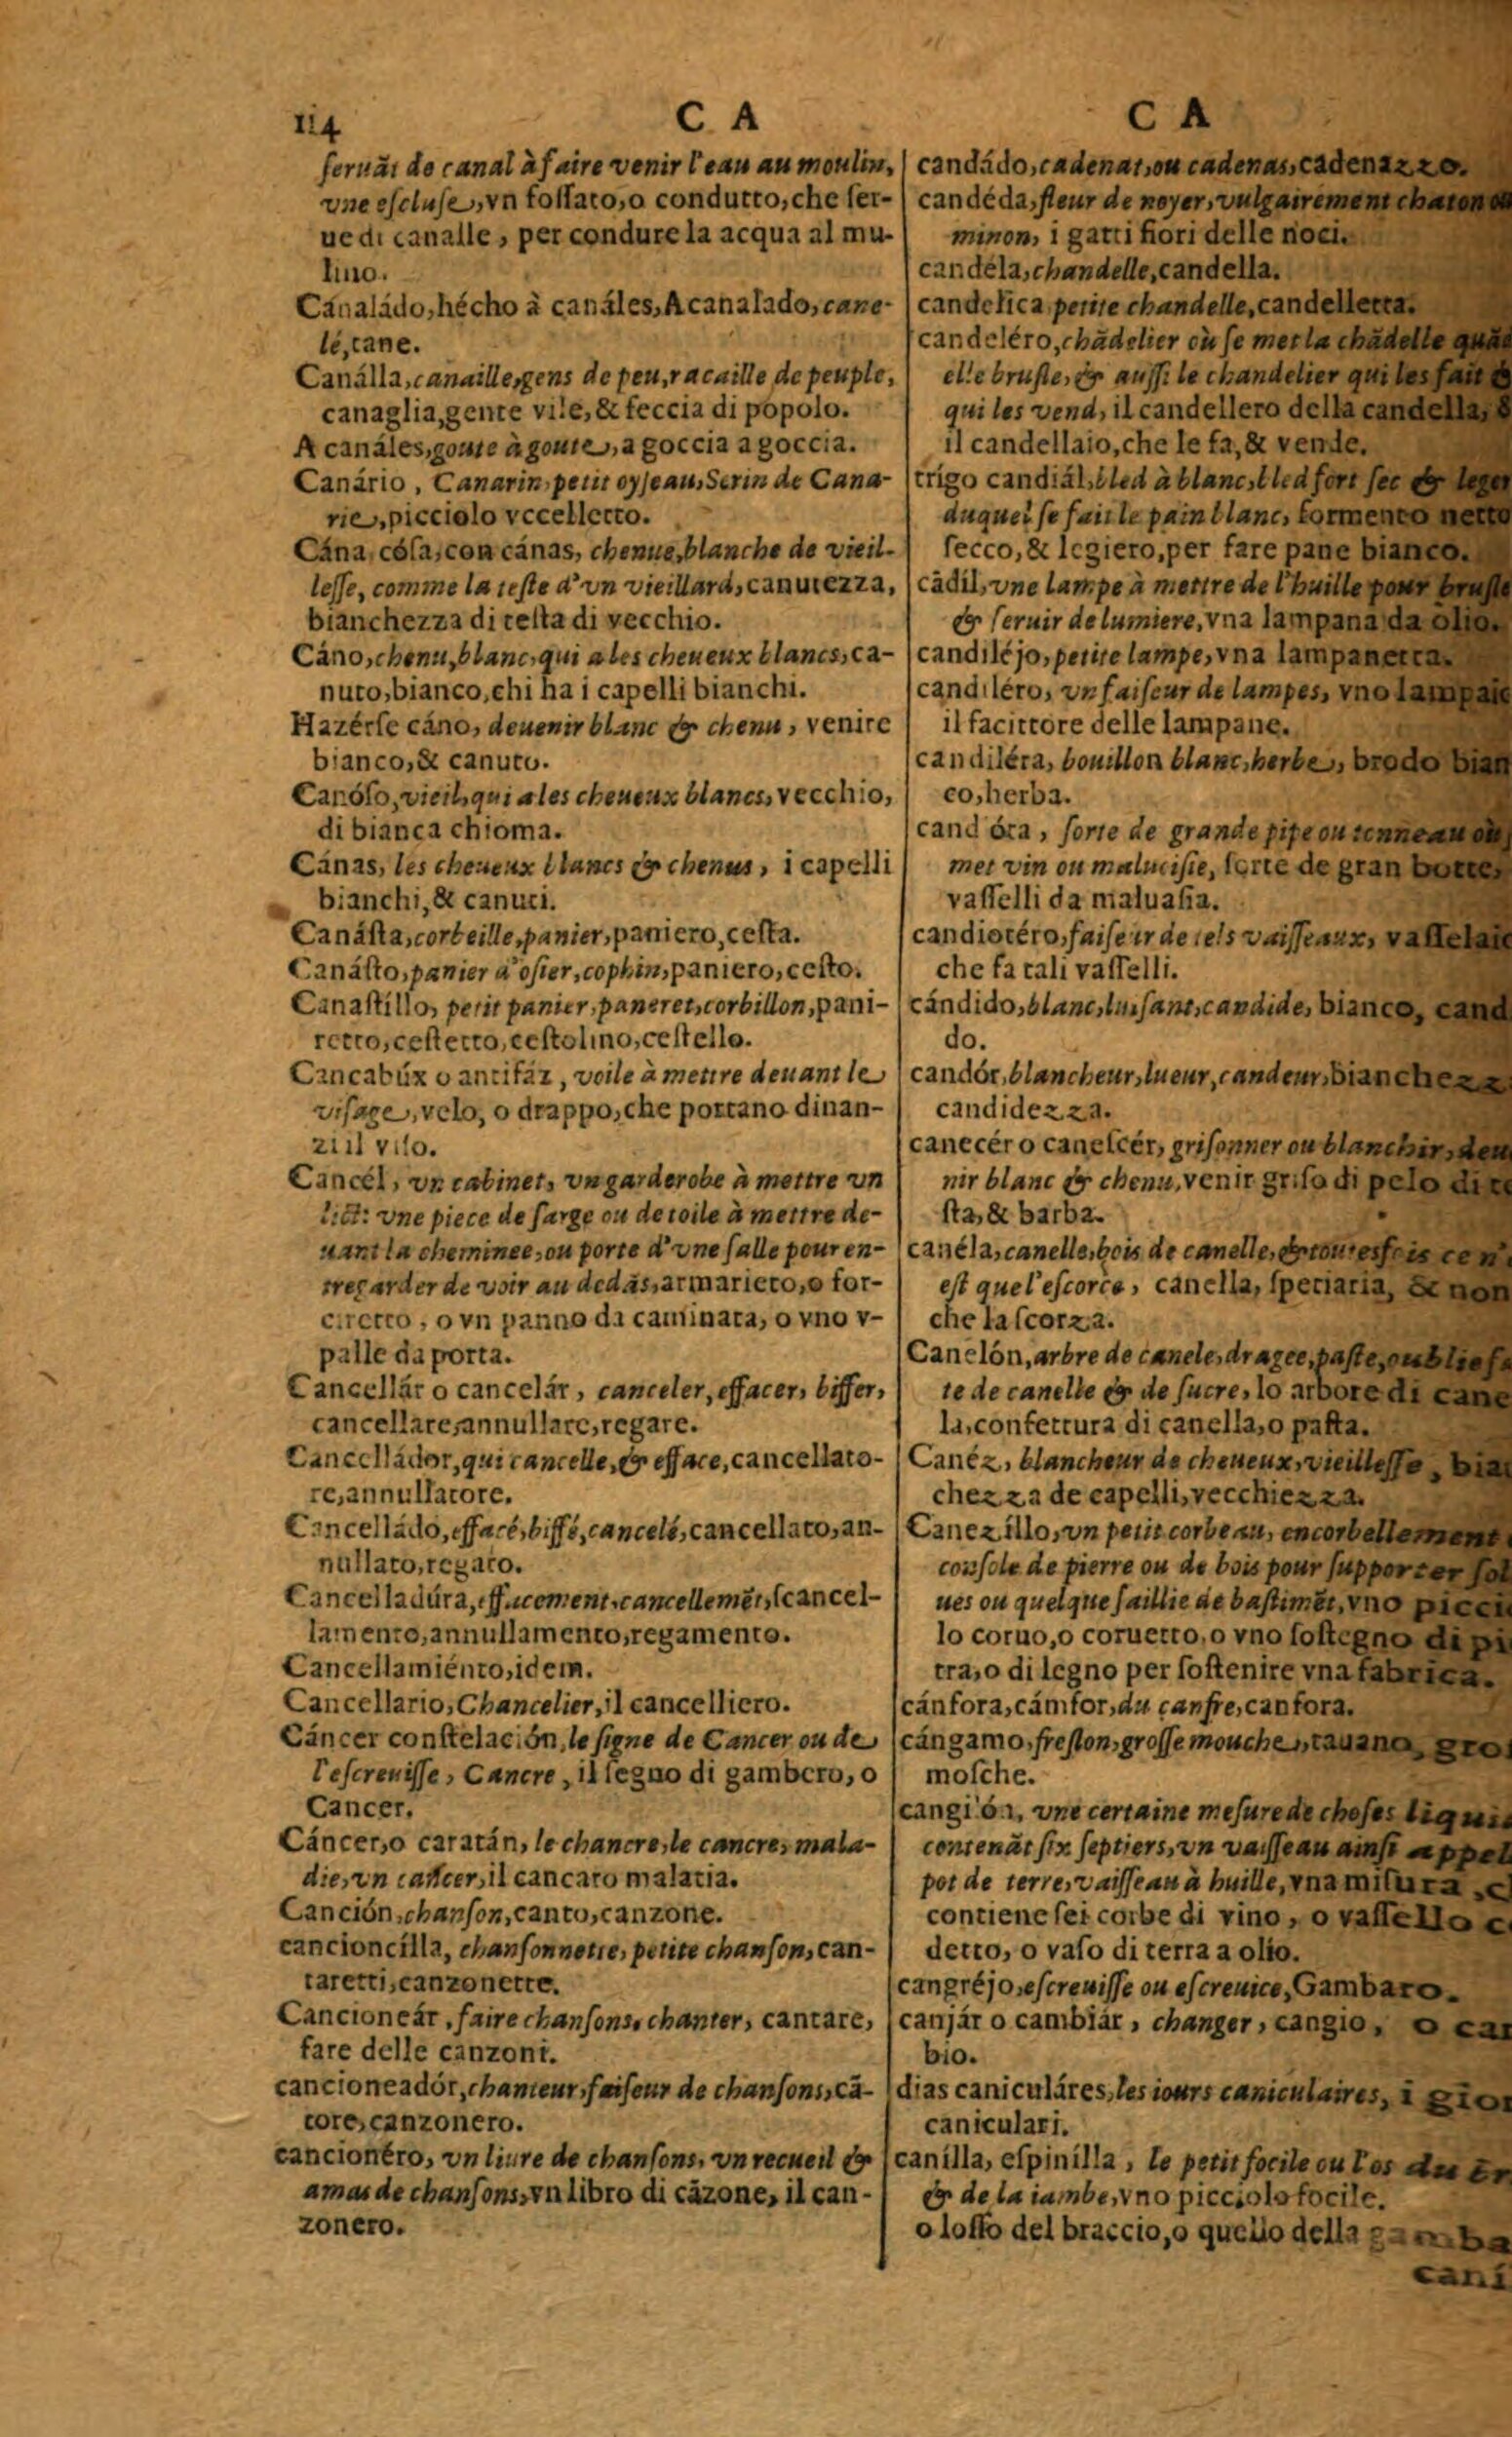 114
C A
ſeruãt de canal à faire venir l'eau au moulin,
vne eſcluſe, vn foſſato, o condutto, che ſer-
ue di canalle, per condure la acqua al mu-
lino.
Canaládo, hécho à canáles, Acanalado, cane-
lé, cane.
Canálla, canaille, gens de peu, racaille de peuple,
canaglia, gente vile, & feccia di popolo.
A canáles, goute à goute, a goccia a goccia.
Canário, Canarin, petit oyſeau, Serin de Cana-
rie, picciolo vccelletto.
Cána cóſa, con cánas, chenue, blanche de vieil-
leſſe, comme la teſte d'vn vieillard, canutezza,
bianchezza di teſta di vecchio.
Cáno, chenu, blanc, qui a les cheueux blancs, ca-
nuto, bianco, chi ha i capelli bianchi.
Hazérſe cáno, deuenir blanc & chenu, venire
bianco, & canuto.
Canóſo, vieil, qui a les cheueux blancs, vecchio,
di bianca chioma.
Cánas, les cheueux blancs & chenus, i capelli
bianchi, & canuti.
Canáſta, corbeille, panier, paniero, ceſta.
Canáſto, panier d'oſier, cophin, paniero, ceſto.
Canaſtíllo, petit panier, paneret, corbillon, pani-
retto, ceſtetto, ceſtolino, ceſtello.
Cancabúx o antifáz, voile à mettre deuant le
viſage, velo, o drappo, che portano dinan-
zi il viſo.
Cancél, vn cabinet, vn garderobe à mettre vn
lict: vne piece de ſarge ou de toile à mettre de-
uant la cheminee, ou porte d'vne ſalle pour en-
tregarder de voir au dedãs, armarieto, o for-
ciretto, o vn panno da caminata, o vno v-
palle da porta.
Cancellár o cancelár, canceler, effacer, biffer,
cancellare, annullare, regare.
Cancelládor, qui cancelle, & efface, cancellato-
re, annullatore.
Cancelládo, effacé, biffé, cancelé, cancellato, an-
nullato, regato.
Cancelladúra, effacement, cancellemẽt, ſcancel-
lamento, annullamento, regamento.
Cancellamiénto, idem.
Cancellario, Chancelier, il cancelliero.
Cáncer conſtelación, le ſigne de Cancer ou de
l'eſcreuiſſe, Cancre, il ſegno di gambero, o
Cancer.
Cáncer, o caratán, le chancre, le cancre, mala-
die, vn cancer, il cancaro malatia.
Canción, chanſon, canto, canzone.
cancioncílla, chanſonnette, petite chanſon, can-
taretti, canzonette.
Cancioneár, faire chanſons, chanter, cantare,
fare delle canzoni.
cancioneadór, chanteur, faiſeur de chanſons, cã-
tore, canzonero.
cancionéro, vn liure de chanſons, vn recueil &
amas de chanſons, vn libro di cãzone, il can-
zonero.
C A
candádo, cadenat, ou cadenas, cadenazzo.
candéda, fleur de noyer, vulgairement chaton ou
minon, i gatti fiori delle noci.
candéla, chandelle, candella.
candelica petite chandelle, candelletta.
candeléro, chãdelier où ſe met la chãdelle quãd
elle bruſle, & auſſi le chandelier qui les fait &
qui les vend, il candellero della candella, &
il candellaio, che le fa, & vende.
trígo candiál, bled à blanc, bled fort ſec & leger
duquel ſe fait le pain blanc, formento netto
ſecco, & legiero, per fare pane bianco.
cãdíl, vne lampe à mettre de l'huille pour bruſle
& ſeruir de lumiere, vna lampana da olio.
candiléjo, petite lampe, vna lampanetta.
candiléro, vn faiſeur de lampes, vno lampaio
il facittore delle lampane.
candiléra, bouillon blanc, herbe, brodo bian
co, herba.
candióta, ſorte de grande pipe ou tonneau où
met vin ou maluoiſie, ſorte de gran botte,
vaſſelli da maluaſia.
candiotéro, faiſeur de tels vaiſſeaux, vaſſelaio
che fa tali vaſſelli.
cándido, blanc, luiſant, candide, bianco, cand
do.
candór, blancheur, lueur, candeur, bianchezz
candidezza.
canecér o caneſcér, griſonner ou blanchir, deu
nir blanc & chenu, venir griſo di pelo di te
ſta, & barba.
canéla, canelle, bois de canelle, & toutesfois ce n'
eſt que l'eſcorce, canella, ſpetiaria, & non
che la ſcorza.
Canelón, arbre de canele, dragee, paſte, oublie fa
te de canelle & de ſucre, lo arbore di cane
la, confettura di canella, o paſta.
Canéz, blancheur de cheueux, vieilleſſe, bian
chezza de capelli, vecchiezza.
Canezíllo, vn petit corbeau, encorbellement
conſole de pierre ou de bois pour ſupporter ſol
ues ou quelque ſaillie de baſtimẽt, vno picci
lo coruo, o coruetto, o vno ſoſtegno di pi
tra, o di legno per ſoſtenire vna fabrica.
cánfora, cámfor, du canfre, canfora.
cángamo, freſlon, groſſe mouche, tauano, groſ
moſche.
cangilón, vne certaine meſure de choſes liqui
contenãt ſix ſeptiers, vn vaiſſeau ainſi appel
pot de terre, vaiſſeau à huille, vna miſura, c
contiene ſei corbe di vino, o vaſſello c
detto, o vaſo di terra a olio.
cangréjo, eſcreuiſſe ou eſcreuice, Gambaro.
canjár o cambiár, changer, cangio, o cam
bio.
dias caniculáres, les iours caniculaires, i gior
caniculari.
canílla, eſpinílla, le petit focile ou l'os du br
& de la iambe, vno picciolo focile.
o loſſo del braccio, o quello della gamba
caní